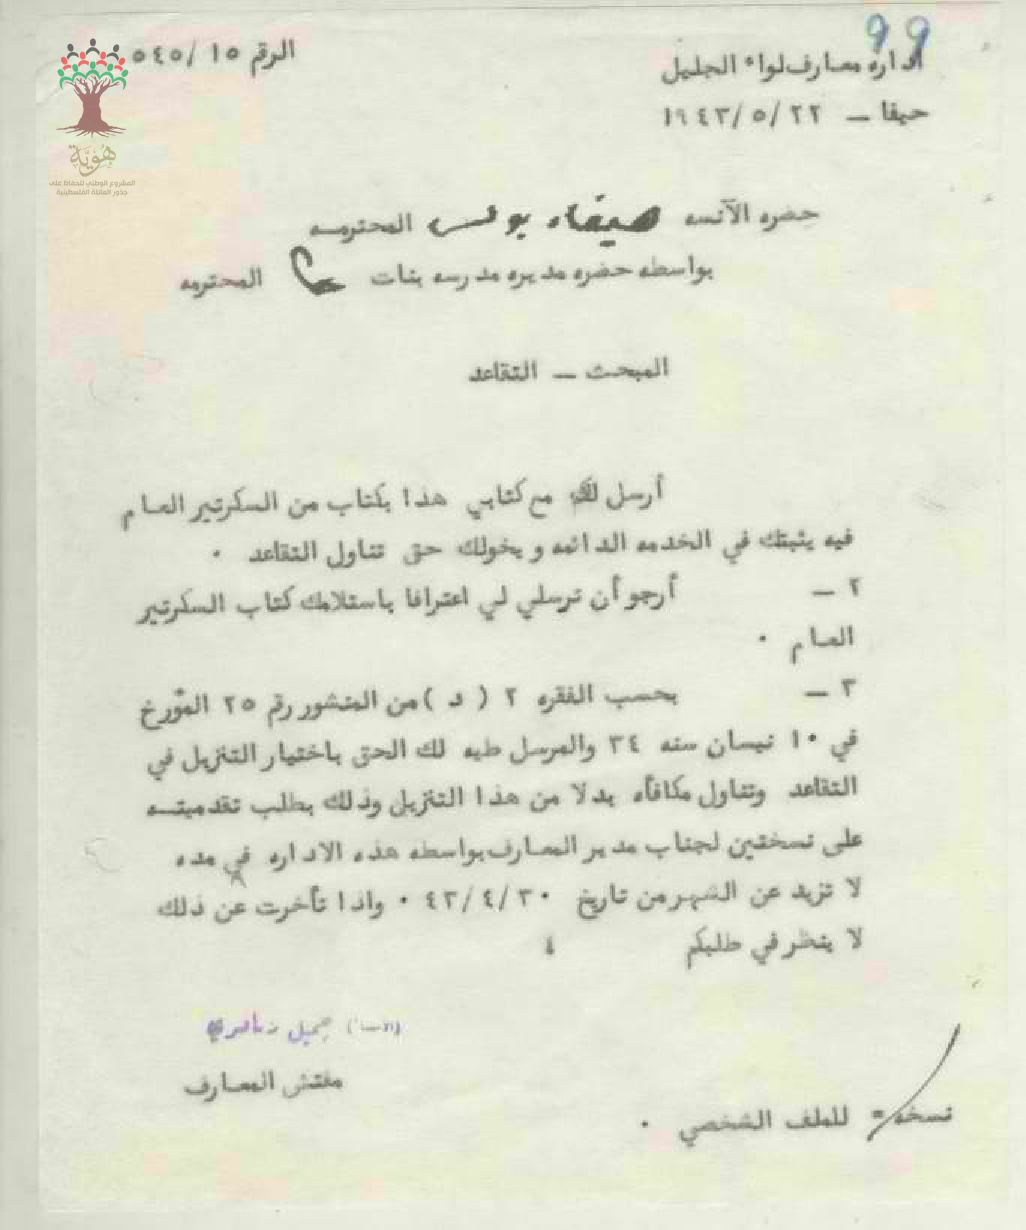 99
الرقم ١٥ /٥٤٥
اداره معارف لواء الجليل
حيفا — ٢٢ /٥ /١٩٤٣
هُوِيَّة
المشروع الوطني للحفاظ على
جذور العائلة الفلسطينية
حضره الآنسه هيفاء بولس المحترمـه
بواسطه حضره مديره مدرسه بنات المحترمه
المبحث — التقاعد
أرسل لك مع كتابي هذا بكتاب من السكرتير العام
فيه يثبتك في الخدمه الدائمه ويخولك حق تناول التقاعد ٠
٢ — أرجو أن ترسلي لي اعترافا باستلامك كتاب السكرتير
العام ٠
٣ — بحسب الفقره ٢ ( د ) من المنشور رقم ٢٥ المؤرخ
في ١٠ نيسان سنه ٣٤ والمرسل طيه لك الحق باختيار التنزيل في
التقاعد وتناول مكافأه بدلا من هذا التنزيل وذلك بطلب تقدميتـه
على نسختين لجناب مدير المعارف بواسطه هذه الاداره في مده
لا تزيد عن الشهر من تاريخ ٣٠ /٤ /٤٣ ٠ واذا تأخرت عن ذلك
لا ينظر في طلبكم
جميل
مفتش المعارف
نسخه = للملف الشخصي ٠